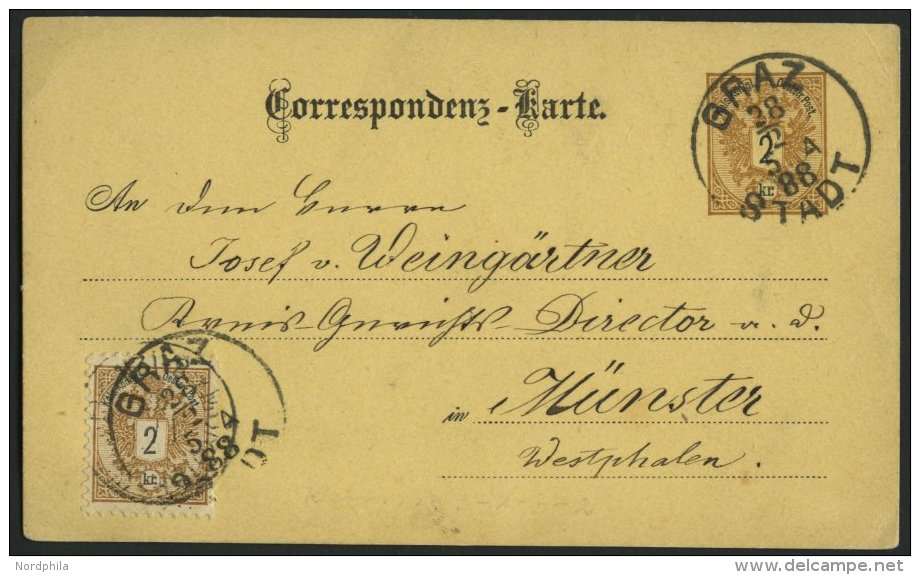 Correspondenz-Karte.
GRAZ
28
2
88
STADT
2
kr.
An den Herrn
Josef v. Weingärtner
Kreis-Gerichts-Director a. D.
in Münster
Westphalen.
GRAZ
88
2
kr.
Nordphila
www.delcampe.net